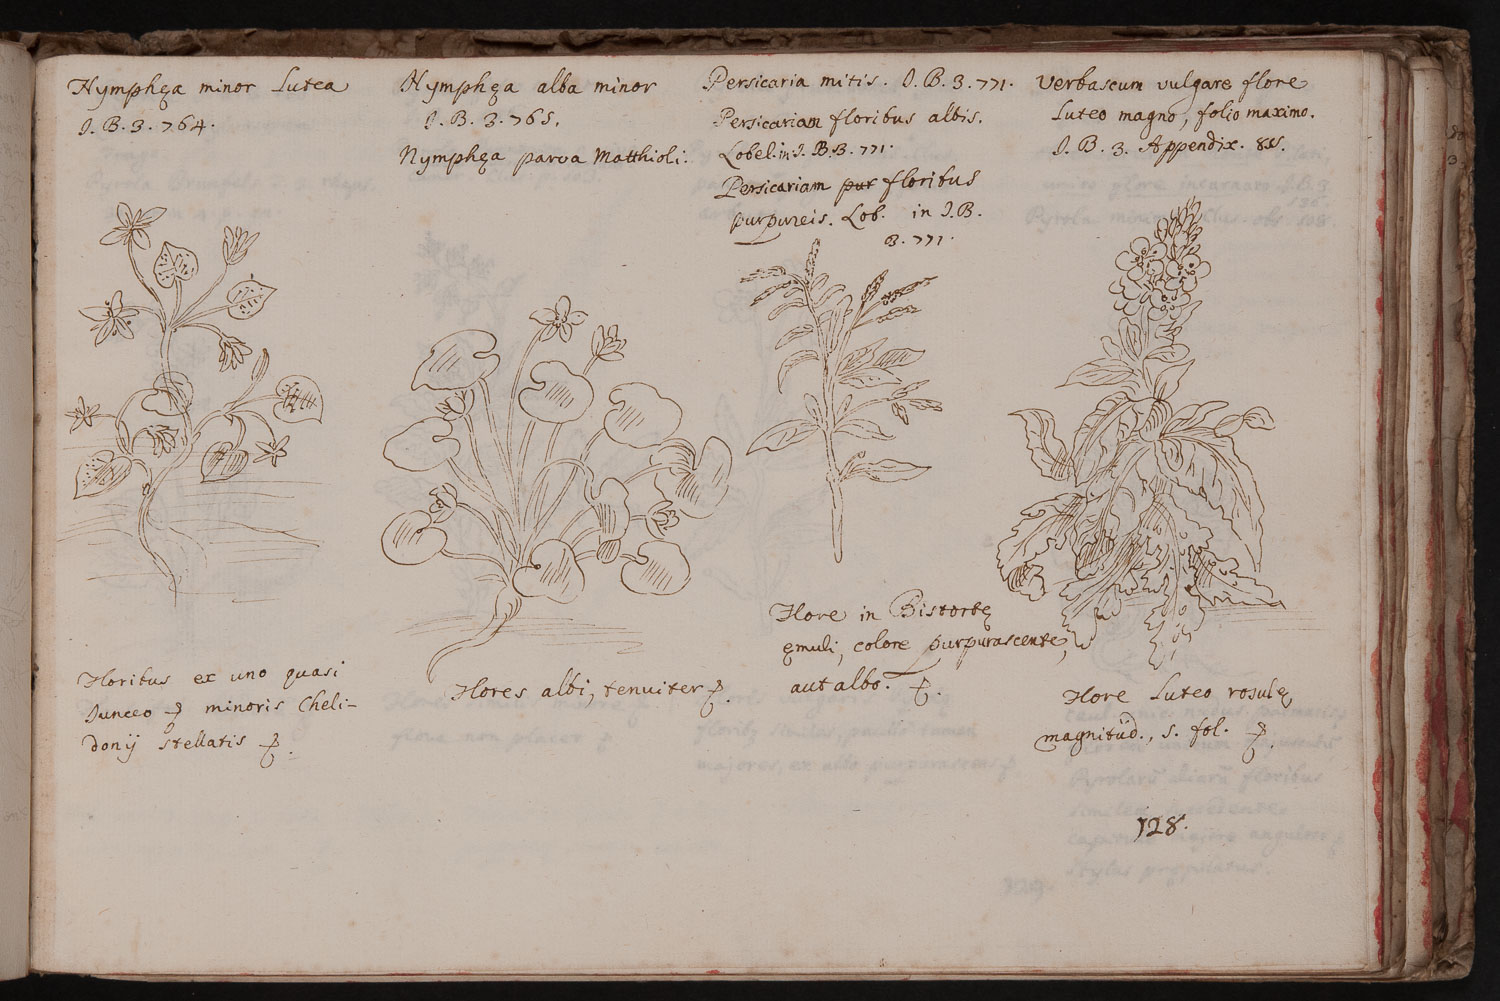 Nymphęa minor Lutea
I. B. 3. 764.
Floribus ex uno quasi
Iunceo minoris Cheli-
donij stellatis
Nymphęa alba minor
I. B. 3. 765.
Nymphęa parva Matthioli.
Flores albi, tenuiter
Persicaria mitis. I. B. 3. 771.
Persicariam floribus albis.
Lobel. in I. B. 3. 771.
Persicariam pur floribus
purpureis. Lob. in I. B.
3. 771.
Flore in Bistortę
ęmuli, colore purpurascente,
aut albo.
Verbascum vulgare flore
Luteo magno, folio maximo.
I. B. 3. Appendix. 85.
Flore Luteo rosulę
magnitüd., s. fol.
128.